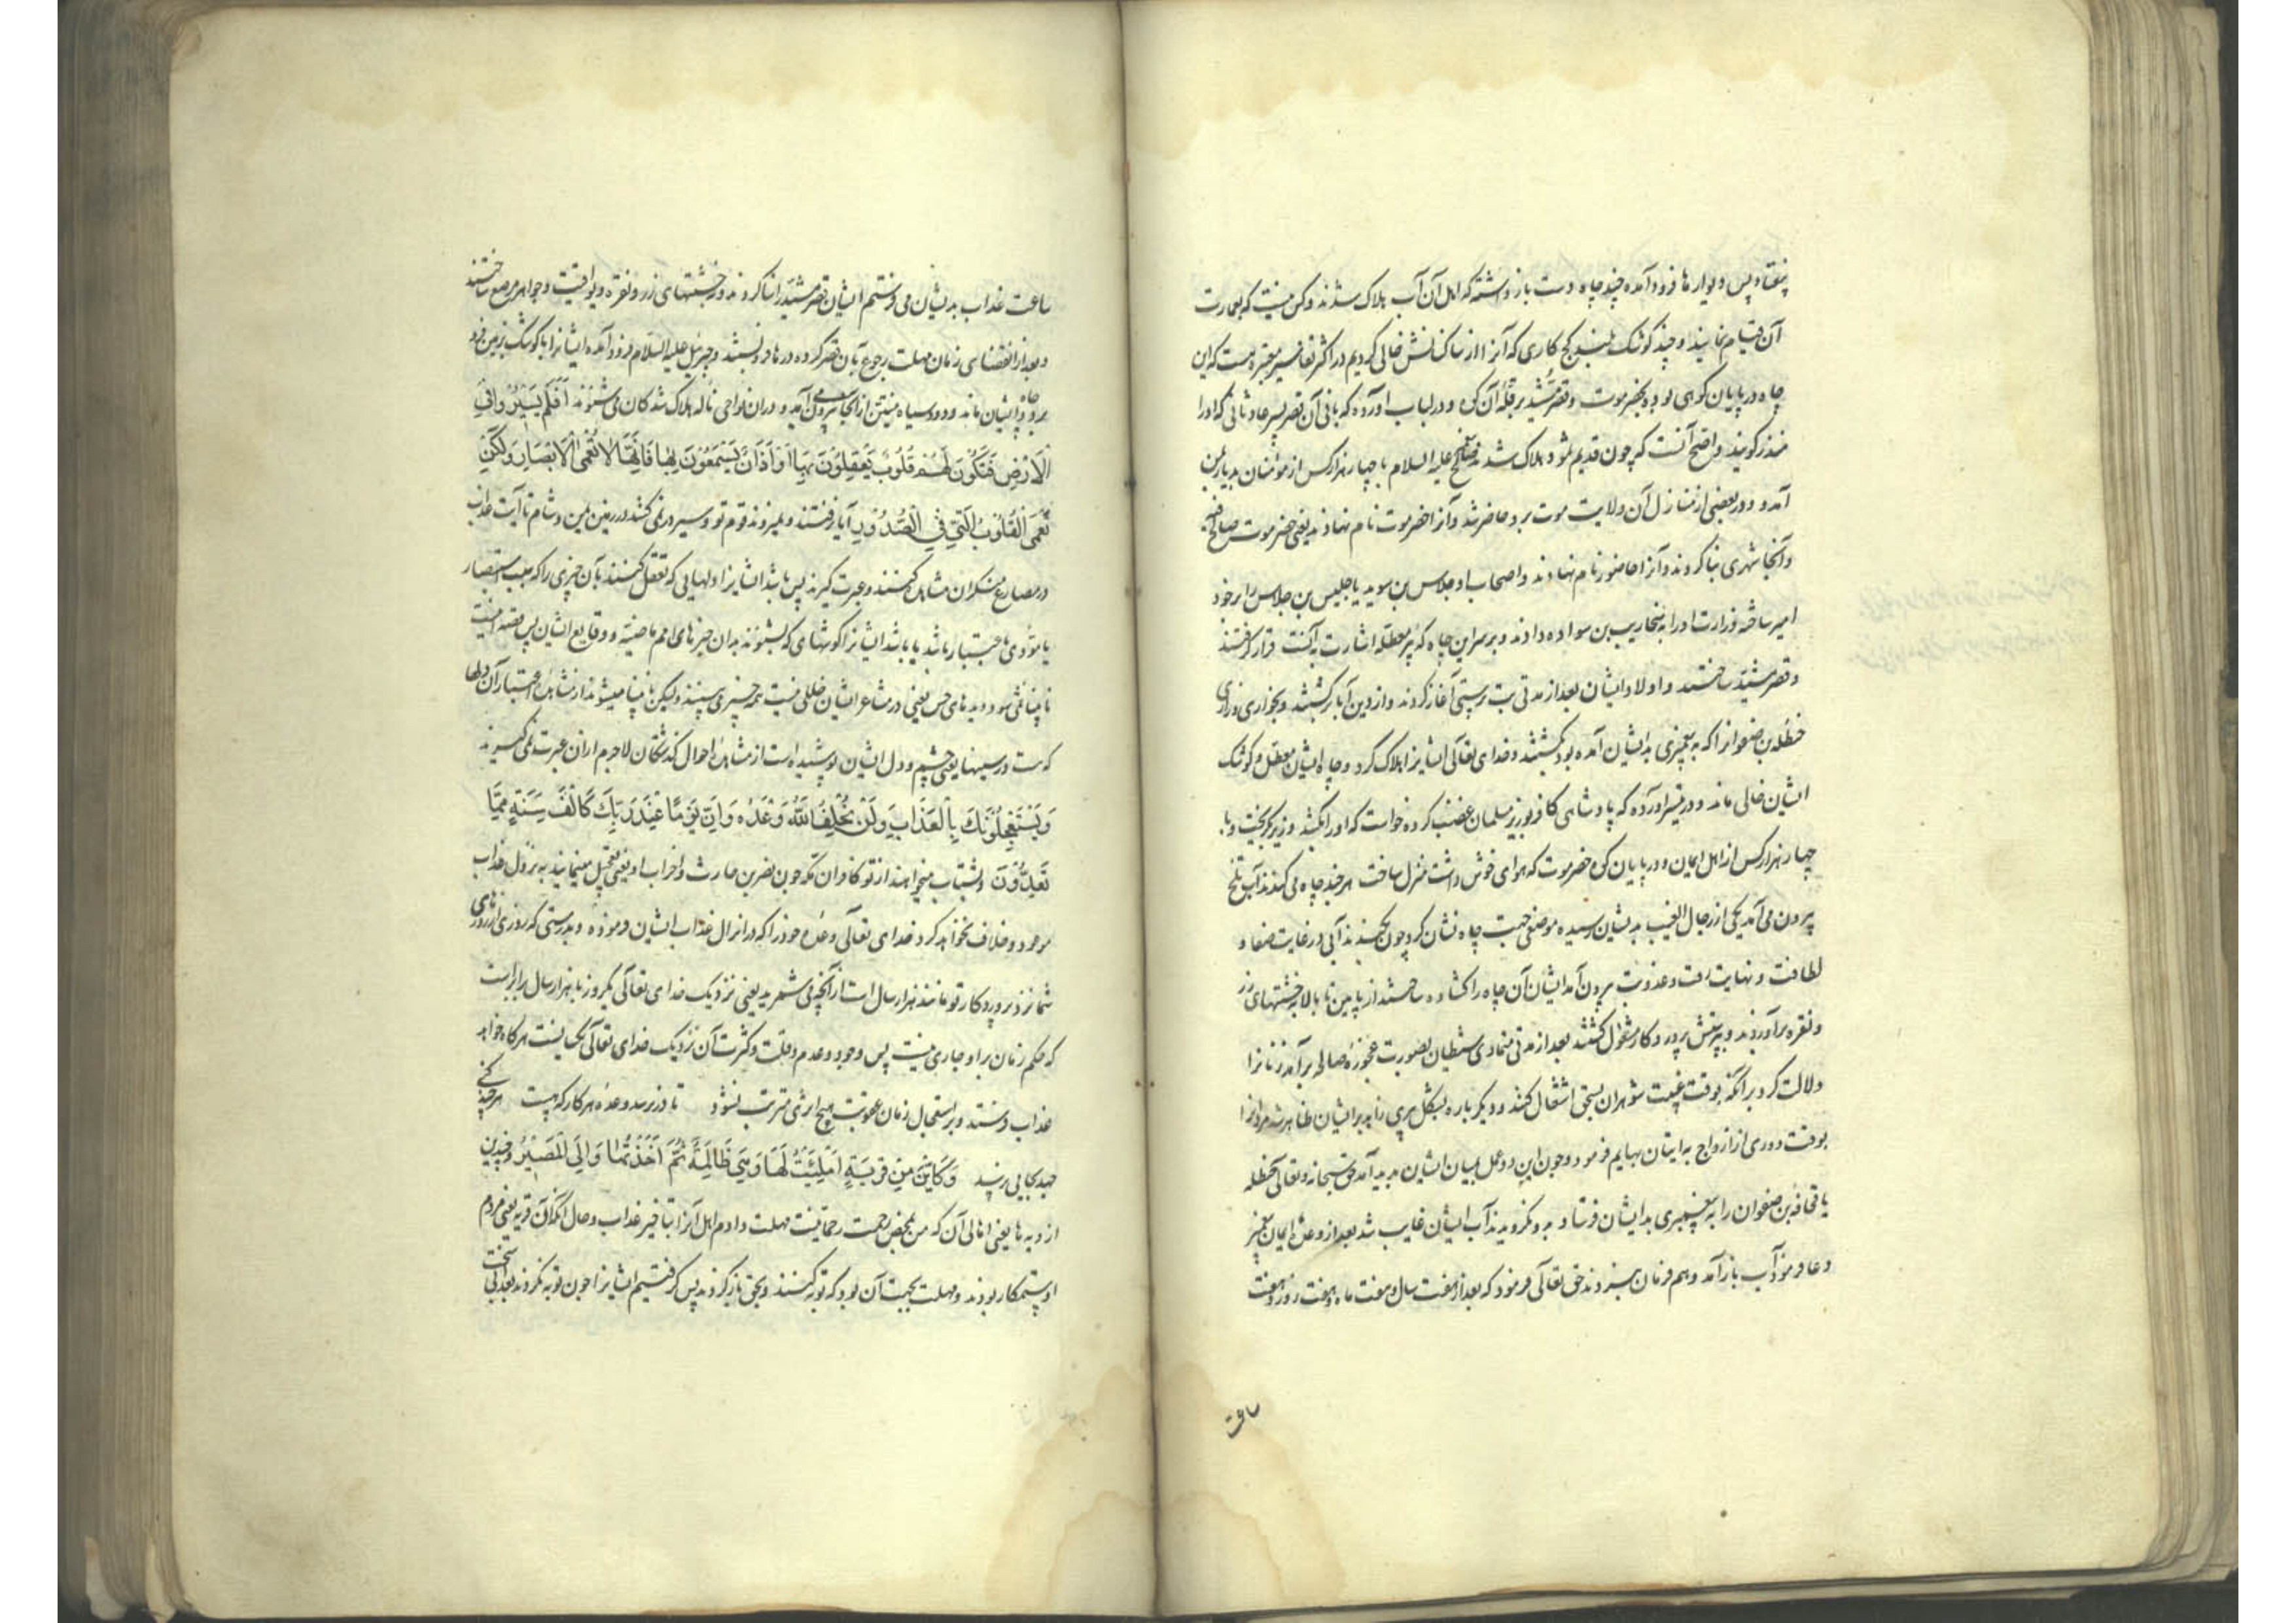 بیفتاد پس دیوارها فرود آمده و چند چاه دست بازداشته که اهل آن آب هلاک شدند و کس نیست که بعمارت
آن قیام نماید و چند کوشک بلند گچ کاری که آنرا از ساکنانش خالی کردیم در اکثر تفاسیر معتبره هست که این
چاه در پایان کوهی بود بحضرموت و قصر مشید بر قله آن کوه و در لباب آورده که بانی آن قصر پسر عاد ثانی که او را
منذر گویند واضح آنست که چون قدیم ثمود هلاک شدند صالح علیه السلام با چهار هزار کس از مؤمنان بدیار یمن
آمد و در بعضی از منازل آن ولایت موت برو حاضر شد و آنرا حضرموت نام نهادند یعنی حضر موت صالح
و آنجا شهری بنا کردند و آنرا حاضورا نام نهادند و اصحاب او جلاس بن سوید یا جلیس بن جلاس را بر خود
امیر ساخته وزارت او را به سنحاریب بن سواده دادند و بر سر این چاه که بئر معطله اشارت به آنست قرار گرفتند
و قصر مشید ساختند و اولاد ایشان بعد از مدتی بت پرستی آغاز کردند و از دین آبا برگشتند و بخواری و زاری
حنظلة بن صفوانرا که به پیغمبری بدیشان آمده بود بکشتند و خدای تعالی ایشانرا هلاک کرد و چاه ایشان معطل و کوشک
ایشان خالی ماند و در تیسیر آورده که پادشاهی کافر بر وزیر مسلمان غضب کرده خواست که او را بکشد وزیر بگریخت و با
چهار هزار کس از اهل ایمان و در پایان کوه حضرموت که هوای خوش داشت منزل ساخت هر چند چاه می کندند آب تلخ
بیرون می آمد یکی از رجال الغیب بدیشان رسیده موضعی جهت چاه نشان کرد چون بکندند آبی در غایت صفا و
لطافت و نهایت رقت و عذوبت بیرون آمد ایشان آن چاه را گشاده ساختند از پایین تا بالا به خشتهای زر
و نقره برآوردند و بپرستش پروردگار مشغول گشتند بعد از مدتی متمادی شیطان بصورت عجوزه صالحه برآمد زنانرا
دلالت کرد بر آنکه بوقت غیبت شوهران بسحق اشتغال کنند و دیگر باره بشکل پیری زاهد بر ایشان ظاهر شد مردانرا
بوقت دوری از ازواج به اتیان بهایم فرمود و چون این دو عمل میان ایشان پدید آمد حق سبحانه و تعالی حنظله
یا قحافة بن صفوان را به پیغمبری بدیشان فرستاد بدو نگرویدند آب ایشان غایب شد بعد از وعده ایمان پیغمبر
دعا فرمود آب باز آمد و هم فرمان نبردند حق تعالی فرمود که بعد از هفت سال و هفت ماه و هفت روز و هفت
ساعت
ساعت عذاب بدیشان می فرستم ایشان قصر مشید را بنا کردند و بخشتهای زر و نقره و یواقیت و جواهر مرصع ساختند
و بعد از انقضای زمان مهلت رجوع بآن قصر کرده درها در بستند و جبرئیل علیه السلام فرود آمده ایشانرا با کوشک بزمین فرو
برد و چاه ایشان ماند و دود سیاه منتن از آنجا بیرون می آید و در آن نواحی ناله هلاک شدگان می شنوند أَفَلَمْ يَسِيرُوا فِي
الْأَرْضِ فَتَكُونَ لَهُمْ قُلُوبٌ يَعْقِلُونَ بِهَا أَوْ آذَانٌ يَسْمَعُونَ بِهَا فَإِنَّهَا لَا تَعْمَى الْأَبْصَارُ وَلَكِنْ
تَعْمَى الْقُلُوبُ الَّتِي فِي الصُّدُورِ آیا نرفتند و نمیروند قوم تو و سیر در نمی کنند در زمین یمن و شام تا آیت عذاب
در مصارع منکران مشاهده کنند و عبرت گیرند پس باشد ایشانرا دلهایی که تعقل کنند بآن چیزی را که سبب استبصار
یا مؤدی باعتبار باشد یا باشد ایشانرا گوشهای که بشنوند بدان خبرهای امم ماضیه و وقایع ایشان پس قصه اینست
نابینا نمی شود دیدهای حس یعنی در مشاعر ایشان خللی نیست همه چیز می بینند ولیکن نابینا میشود از مشاهده اعتبار آن دلها
که هست در سینها یعنی چشم دل ایشان پوشیده است از مشاهده احوال گذشتگان لاجرم از آن عبرت نمی گیرند
وَيَسْتَعْجِلُونَكَ بِالْعَذَابِ وَلَنْ يُخْلِفَ اللَّهُ وَعْدَهُ وَإِنَّ يَوْمًا عِنْدَ رَبِّكَ كَأَلْفِ سَنَةٍ مِمَّا
تَعُدُّونَ و بشتاب میخواهند از تو کافران مکه چون نضر بن حارث و اضراب او یعنی تعجیل مینمایند به نزول عذاب
موعود و خلاف نخواهد کرد خدای تعالی وعده خود را که در انزال عذاب ایشان فرموده و بدرستی که روزی از روزهای
شما نزد پروردگار تو مانند هزار سال است از آنچه می شمرید یعنی نزدیک خدای تعالی یکروز با هزار سال برابرست
که حکم زمان برو جاری نیست پس وجود و عدم و قلت و کثرت آن نزدیک خدای تعالی یکی نیست هر گاه خواهد
عذاب فرستد و بر استعجال زمان عقوبت هیچ اثری مترتب نشود تا در نرسد وعده هر کار که هست هر چند کنی
جهد بجایی نرسد وَكَأَيِّنْ مِنْ قَرْيَةٍ أَمْلَيْتُ لَهَا وَهِيَ ظَالِمَةٌ ثُمَّ أَخَذْتُهَا وَإِلَيَّ الْمَصِيرُ و چندین
از دیه ها یعنی اهالی آن که من بمحض رحمت رحمانیت مهلت دادم اهل آنرا بتأخیر عذاب و حال آنکه آن قریه یعنی مردم
او ستمکار بودند و مهلت بجهت آن بود که توبه کنند و بحق بازگردند پس گرفتیم ایشانرا چون توبه نکردند بعذاب سخت